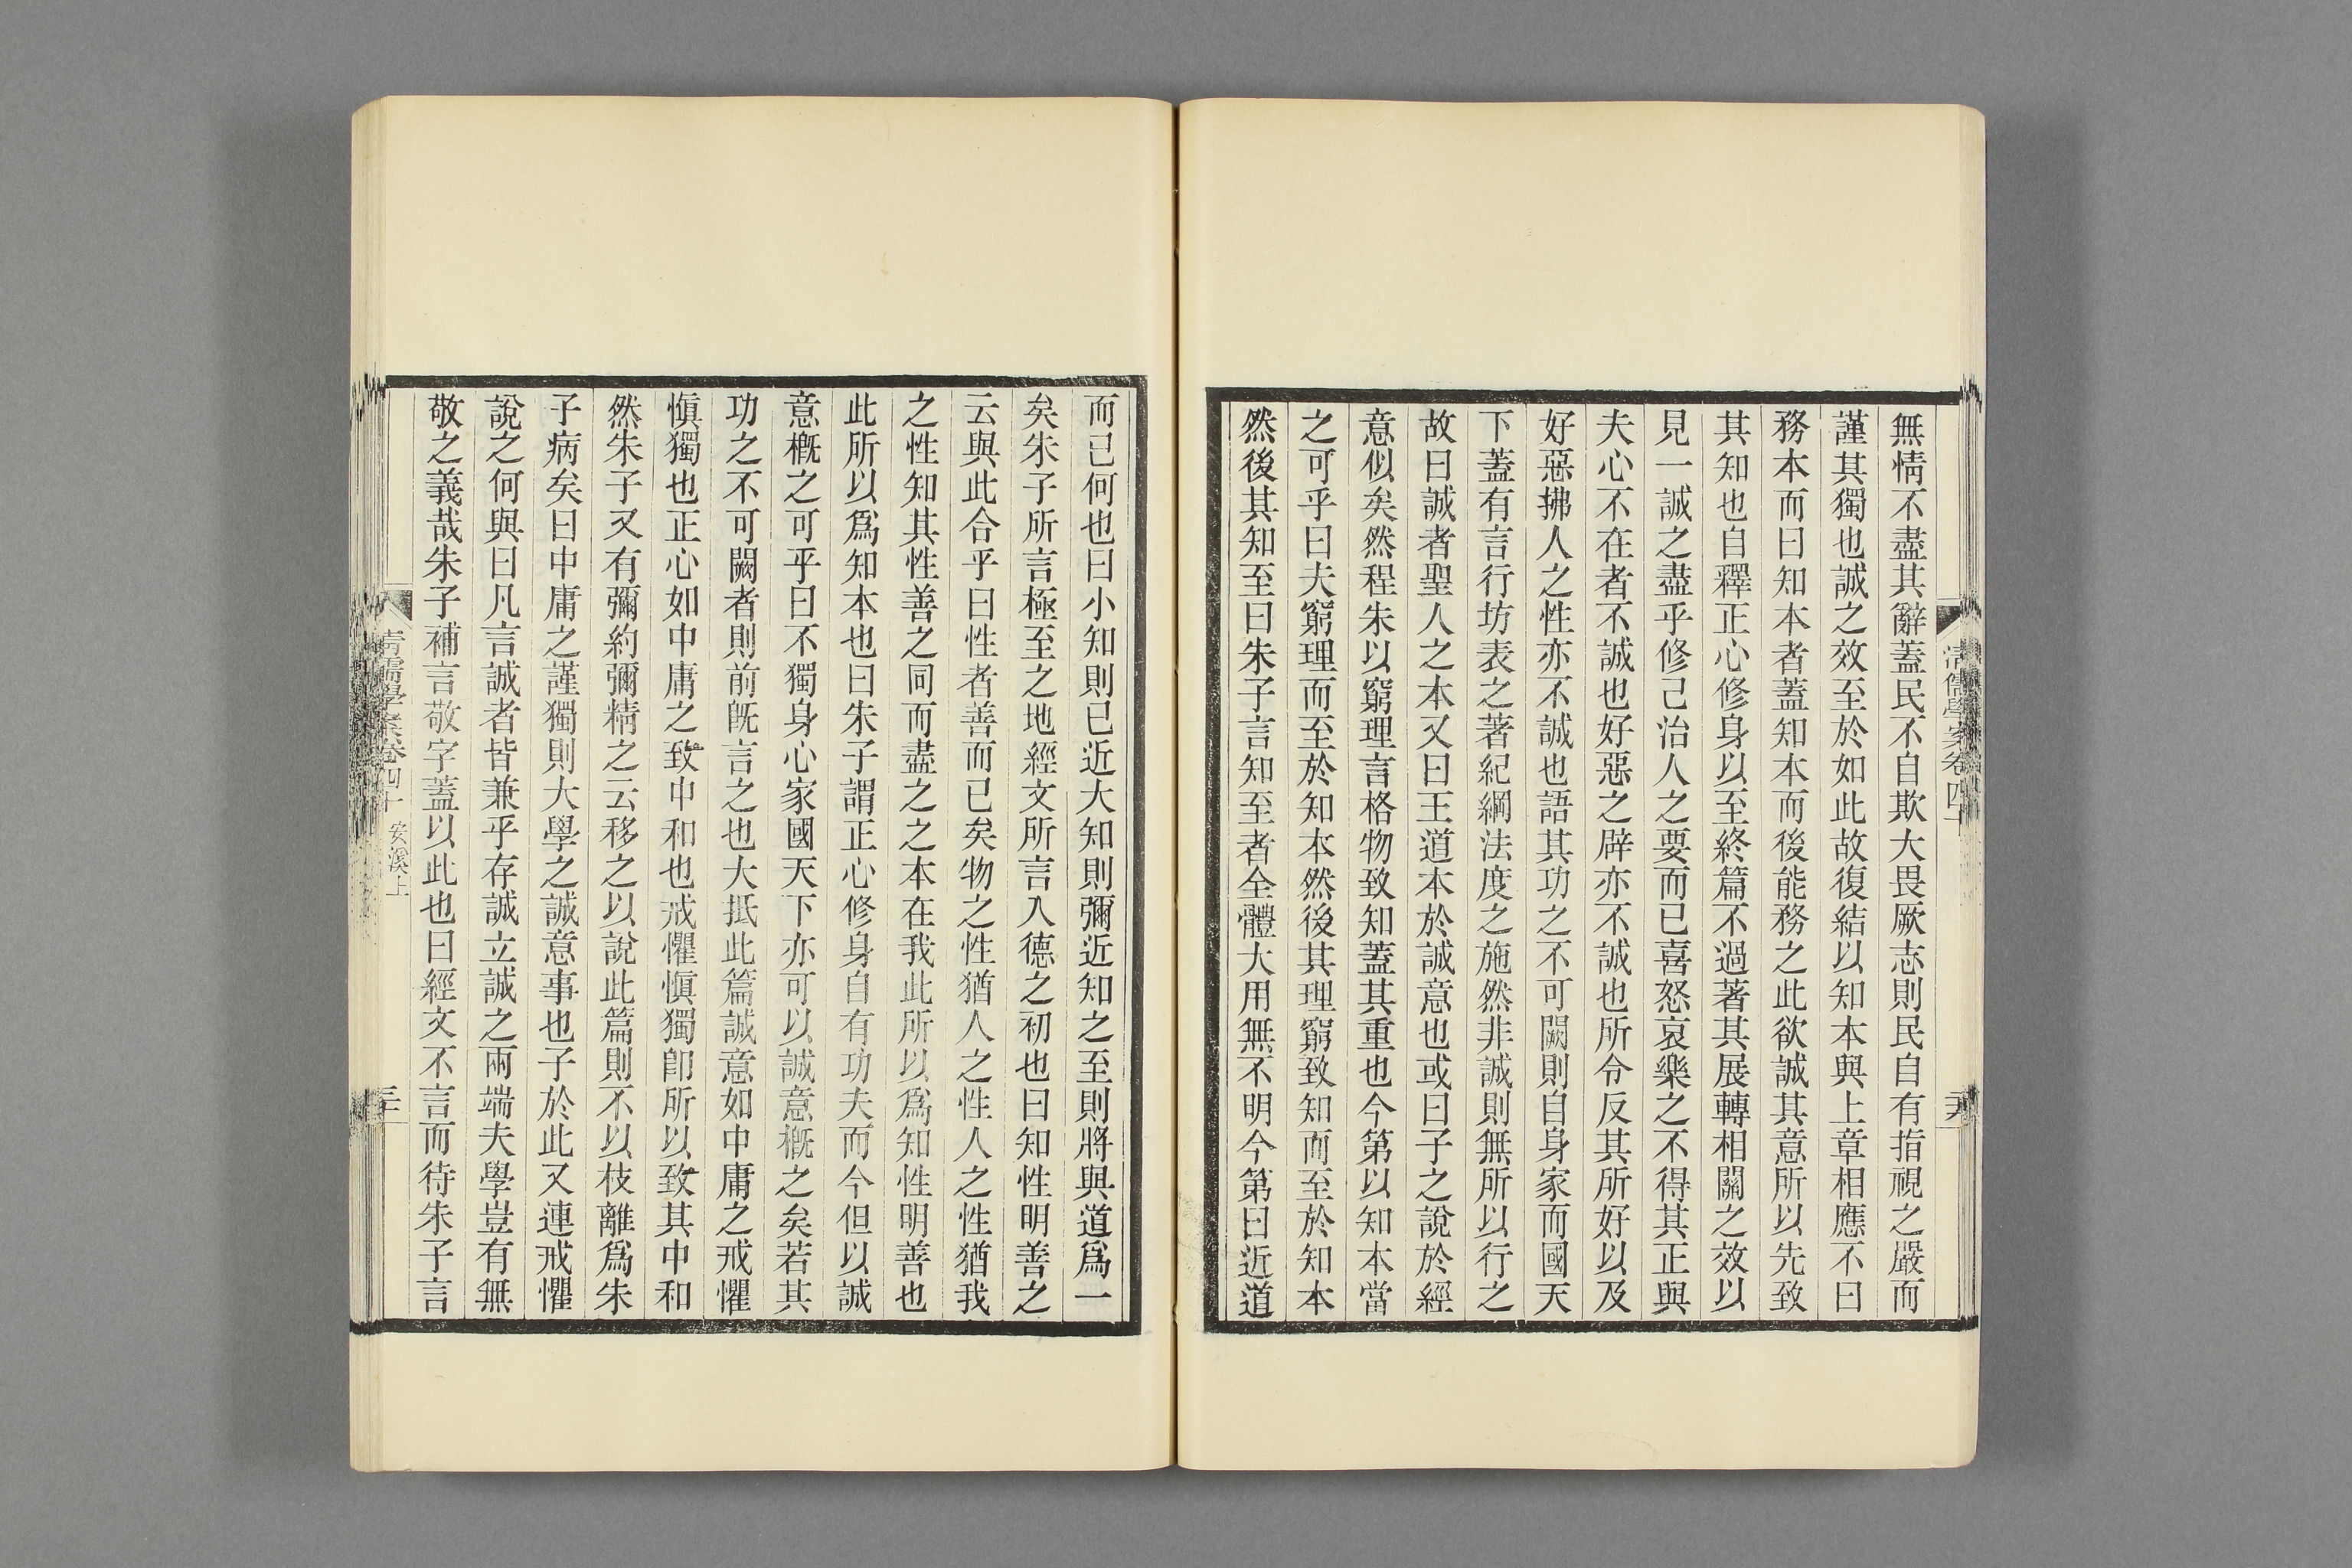 無情不盡其辭蓋民不自欺大畏厥志則民自有指視之嚴而
謹其獨也誠之效至於如此故復結以知本與上章相應不曰
務本而曰知本者蓋知本而後能務之此欲誠其意所以先致
其知也自釋正心修身以至終篇不過著其展轉相關之效以
見一誠之盡乎修己治人之要而已喜怒哀樂之不得其正與
夫心不在者不誠也好惡之辟亦不誠也所令反其所好以及
好惡拂人之性亦不誠也語其功之不可闕則自身家而國天
下蓋有言行坊表之著紀綱法度之施然非誠則無所以行之
故曰誠者聖人之本又曰王道本於誠意也或曰子之說於經
意似矣然程朱以窮理言格物致知蓋其重也今第以知本當
之可乎曰夫窮理而至於知本然後其理窮致知而至於知本
然後其知至曰朱子言知至者全體大用無不明今第曰近道
而已何也曰小知則已近大知則彌近知之至則將與道爲一
矣朱子所言極至之地經文所言入德之初也曰知性明善之
云與此合乎曰性者善而已矣物之性猶人之性人之性猶我
之性知其性善之同而盡之之本在我此所以爲知性明善也
此所以爲知本也曰朱子謂正心修身自有功夫而今但以誠
意槪之可乎曰不獨身心家國天下亦可以誠意槪之矣若其
功之不可闕者則前旣言之也大抵此篇誠意如中庸之戒懼
愼獨也正心如中庸之致中和也戒懼愼獨卽所以致其中和
然朱子又有彌約彌精之云移之以說此篇則不以枝離爲朱
子病矣曰中庸之謹獨則大學之誠意事也子於此又連戒懼
說之何與曰凡言誠者皆兼乎存誠立誠之兩端夫學豈有無
敬之義哉朱子補言敬字蓋以此也曰經文不言而待朱子言
清儒學案卷四十 安溪上